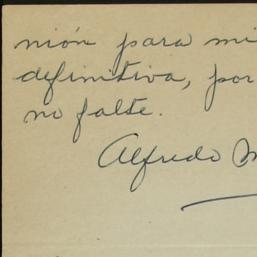 nión para mi
definitiva, por
no falte.
Alfredo M